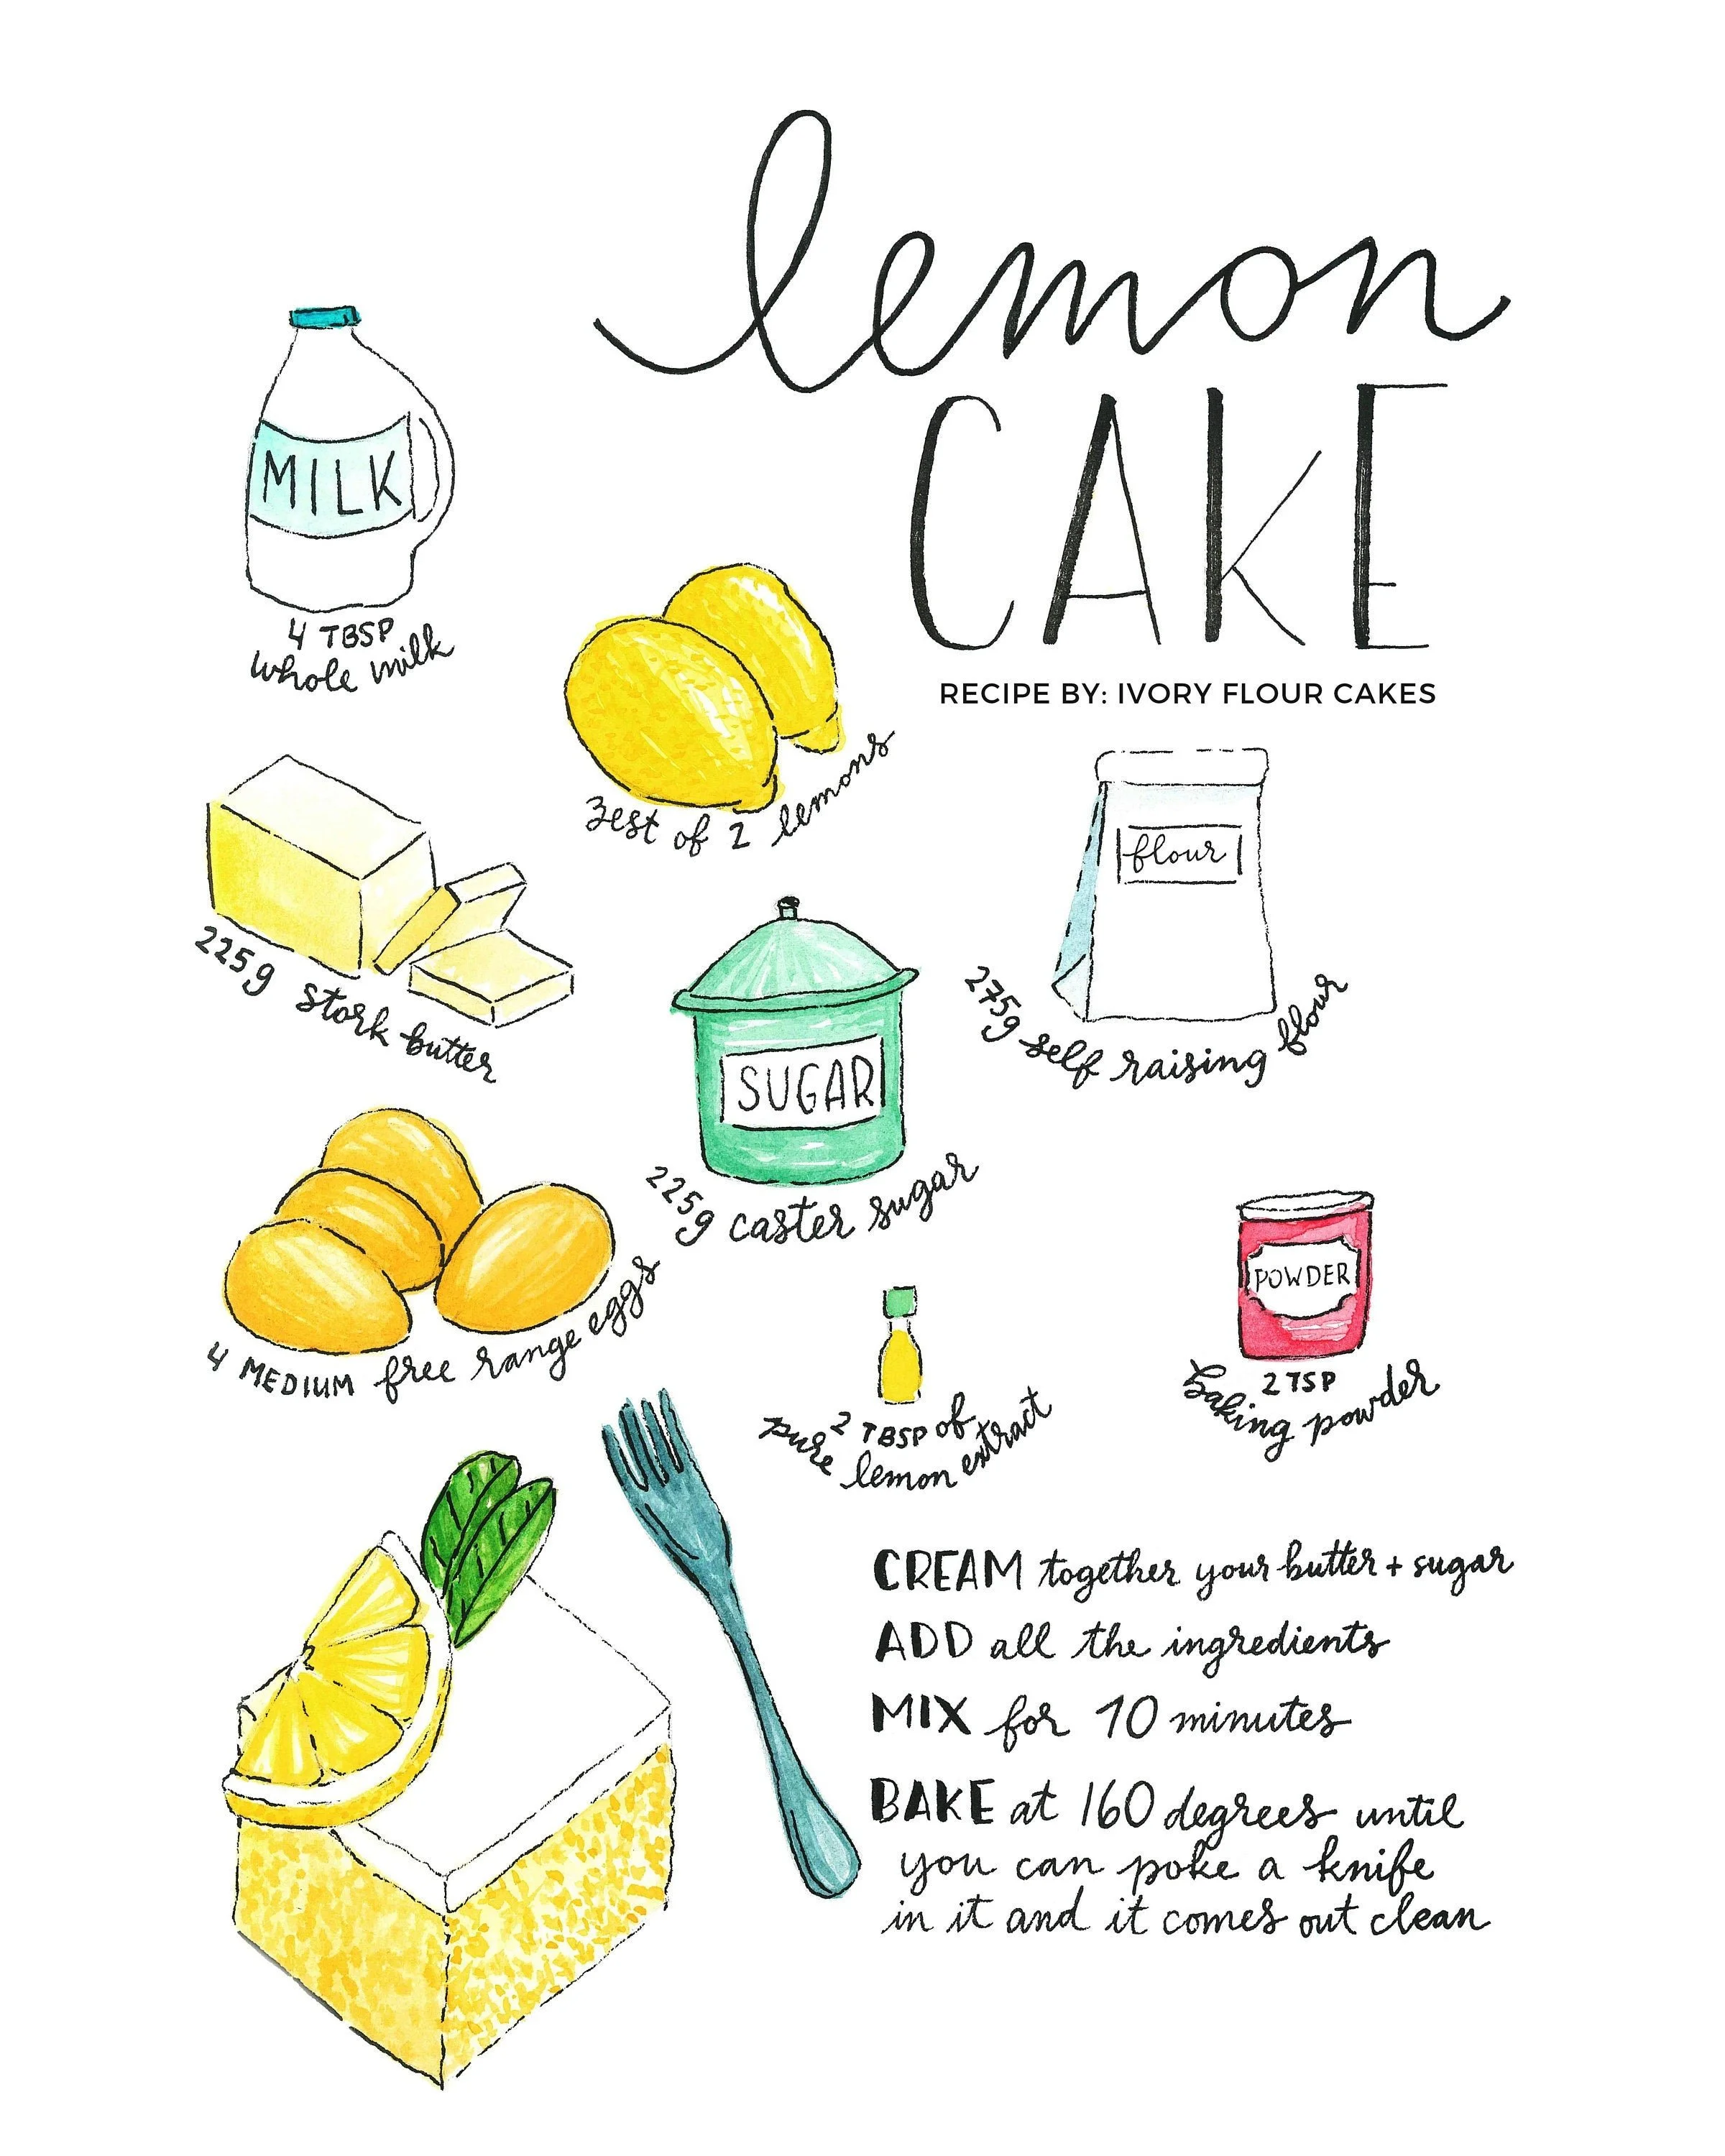 lemon
CAKE
RECIPE BY: IVORY FLOUR CAKES
MILK
4 TBSP
whole milk
zest of 2 lemons
flour
275g self raising flour
225g stork butter
SUGAR
225g caster sugar
4 MEDIUM free range eggs
2 TBSP of
pure lemon extract
POWDER
2 TSP
baking powder
CREAM together your butter + sugar
ADD all the ingredients
MIX for 10 minutes
BAKE at 160 degrees until
you can poke a knife
in it and it comes out clean